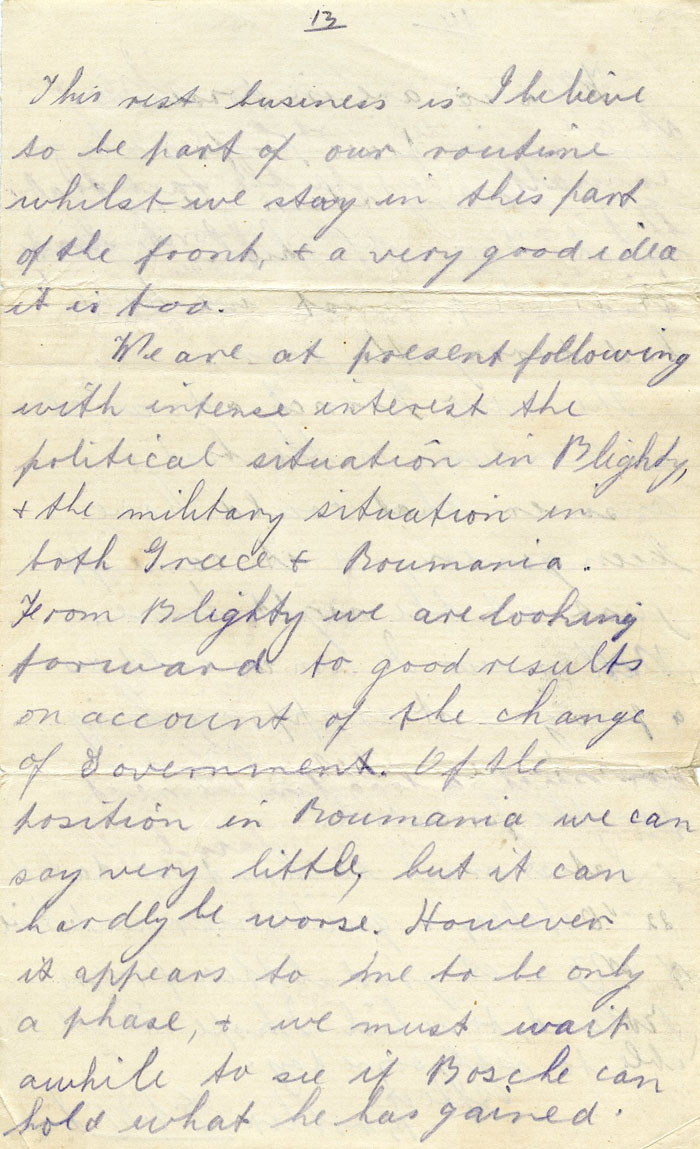 13
This rest business is I believe
to be part of our routine
whilst we stay in this part
of the front, + a very good idea
it is too.
We are at present following
with intense interest the
political situation in Blighty,
+ the military situation in
both Greece + Roumania.
From Blighty we are looking
forward to good results
on account of the change
of Government. Of the
position in Roumania we can
say very little, but it can
hardly be worse. However
it appears to me to be only
a phase, + we must wait
awhile to see if Bosche can
hold what he has gained.